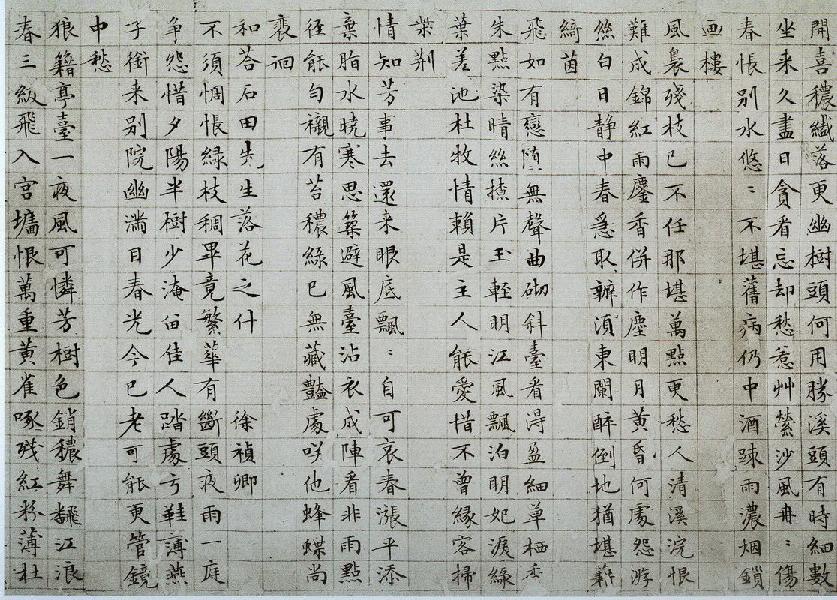 開喜穠纖落更幽樹頭何用勝溪頭有時細數
坐来久盡日貪看忘却愁惹艸縈沙風冉〻傷
春悵別水悠〻不堪舊病仍中酒踈雨濃烟鎖
画樓
風裊殘枝已不任那堪萬點更愁人清溪浣恨
難成錦紅雨塵香併作塵明月黄昏何處怨游
絲白日静中春急取辦湏東闌醉倒地猶堪藉
綺茵
飛如有戀墮無聲曲砌斜臺看得盈細草栖香
朱點染晴絲撩片玉輕明江風飄泊明妃淚綠
葉差池杜牧情賴是主人能愛惜不曾緣客掃
柴荆
情知芳事去還来眼底飄〻自可哀春漲平添
棄脂水曉寒思築避風臺沾衣成陣看非雨點
徑能勻襯有苔穠綠已無藏豔處咲他蜂蝶尚
裵徊
和荅石田先生落花之什 徐禎卿
不須惆悵綠枝稠畢竟繁華有斷頭夜雨一庭
争怨惜夕陽半樹少淹畱佳人踏處弓鞋薄燕
子銜来別院幽滿目春光今已老可能更管鏡
中愁
狼籍亭臺一夜風可憐芳樹色銷穠舞飜江浪
春三級飛入宮墻恨萬重黄雀啄殘紅粉薄杜